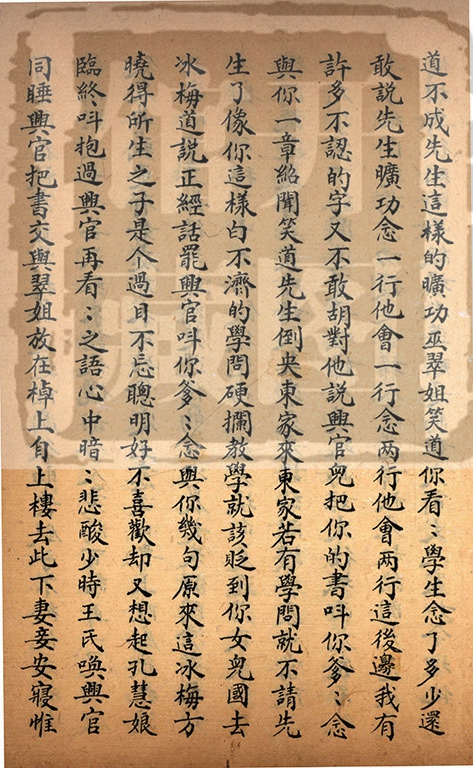 道不成先生這樣的曠功巫翠姐笑道你看〻學生念了多少還
敢說先生曠功念一行他會一行念两行他會两行這後邊我有
許多不認的字又不敢胡對他說興官兒把你的書呌你爹〻念
與你一章紹聞笑道先生倒央東家來東家若有學問就不請先
生了像你這樣白不濟的學問硬攔教學就該貶到你女兒國去
冰梅道說正經話罷興官呌你爹〻念與你幾句原來這冰梅方
曉得所生之子是个過目不忘聰明好不喜歡却又想起孔慧娘
臨終呌抱過興官再看〻之語心中暗〻悲酸少時王氏喚興官
同睡興官把書交與翠姐放在棹上自上樓去此下妻妾安寢惟